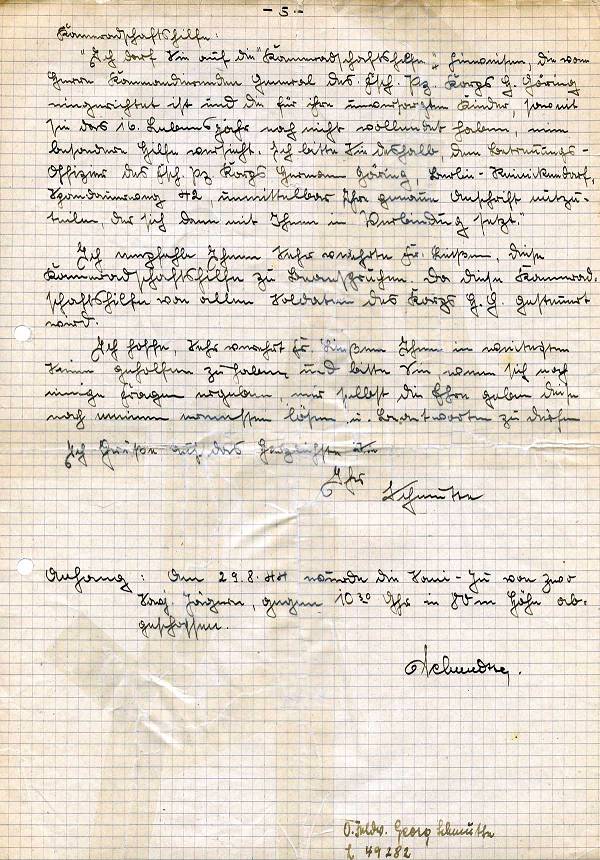 - 5. -
Kameradschaftshilfe:
"Ich darf Sie auf die "Kameradschaftshilfe", hinweisen, die vom
Herrn Kommandierenden General des Fsch. Pz Korps H. Göring
eingerichtet ist und die für ihre unversorgten Kinder, soweit
sie das 16. Lebensjahr noch nicht vollendet haben, eine
besondere Hilfe vorsieht. Ich bitte Sie deshalb, dem Betreuungs-
Offizier des Fsch. Pz Korps Hermann Göring, Berlin-Reinickendorf,
Spandauerweg 42, unmittelbar Ihre genaue Anschrift mitzu-
teilen, der sich dann mit Ihnen in Verbindung setzt."
Ich empfehle Ihnen Sehr verehrte Fr. diese
Kameradschaftshilfe zu beanspruchen. Da diese Kamerad-
schaftshilfe von allen Soldaten des Korps H. G. gesteuert
wird.
Ich hoffe, Sehr verehrte Fr. Ihnen in
Sinne geholfen zu haben, und bitte Sie, wenn sich noch
einige Fragen ergeben, mir selbst die Ehre geben diese
nach meinem ermessen lösen u. beantworten zu dürfen
Ich Grüße auf das Herzlichste
Ihr
Schmutte
Anhang: Am 29.8.44 wurde die Sani-Ju von zwo
Sowj. Jägern, gegen 10 30 Uhr in 80 m Höhe ab-
geschossen.
O.Feldw. Georg
L 49282